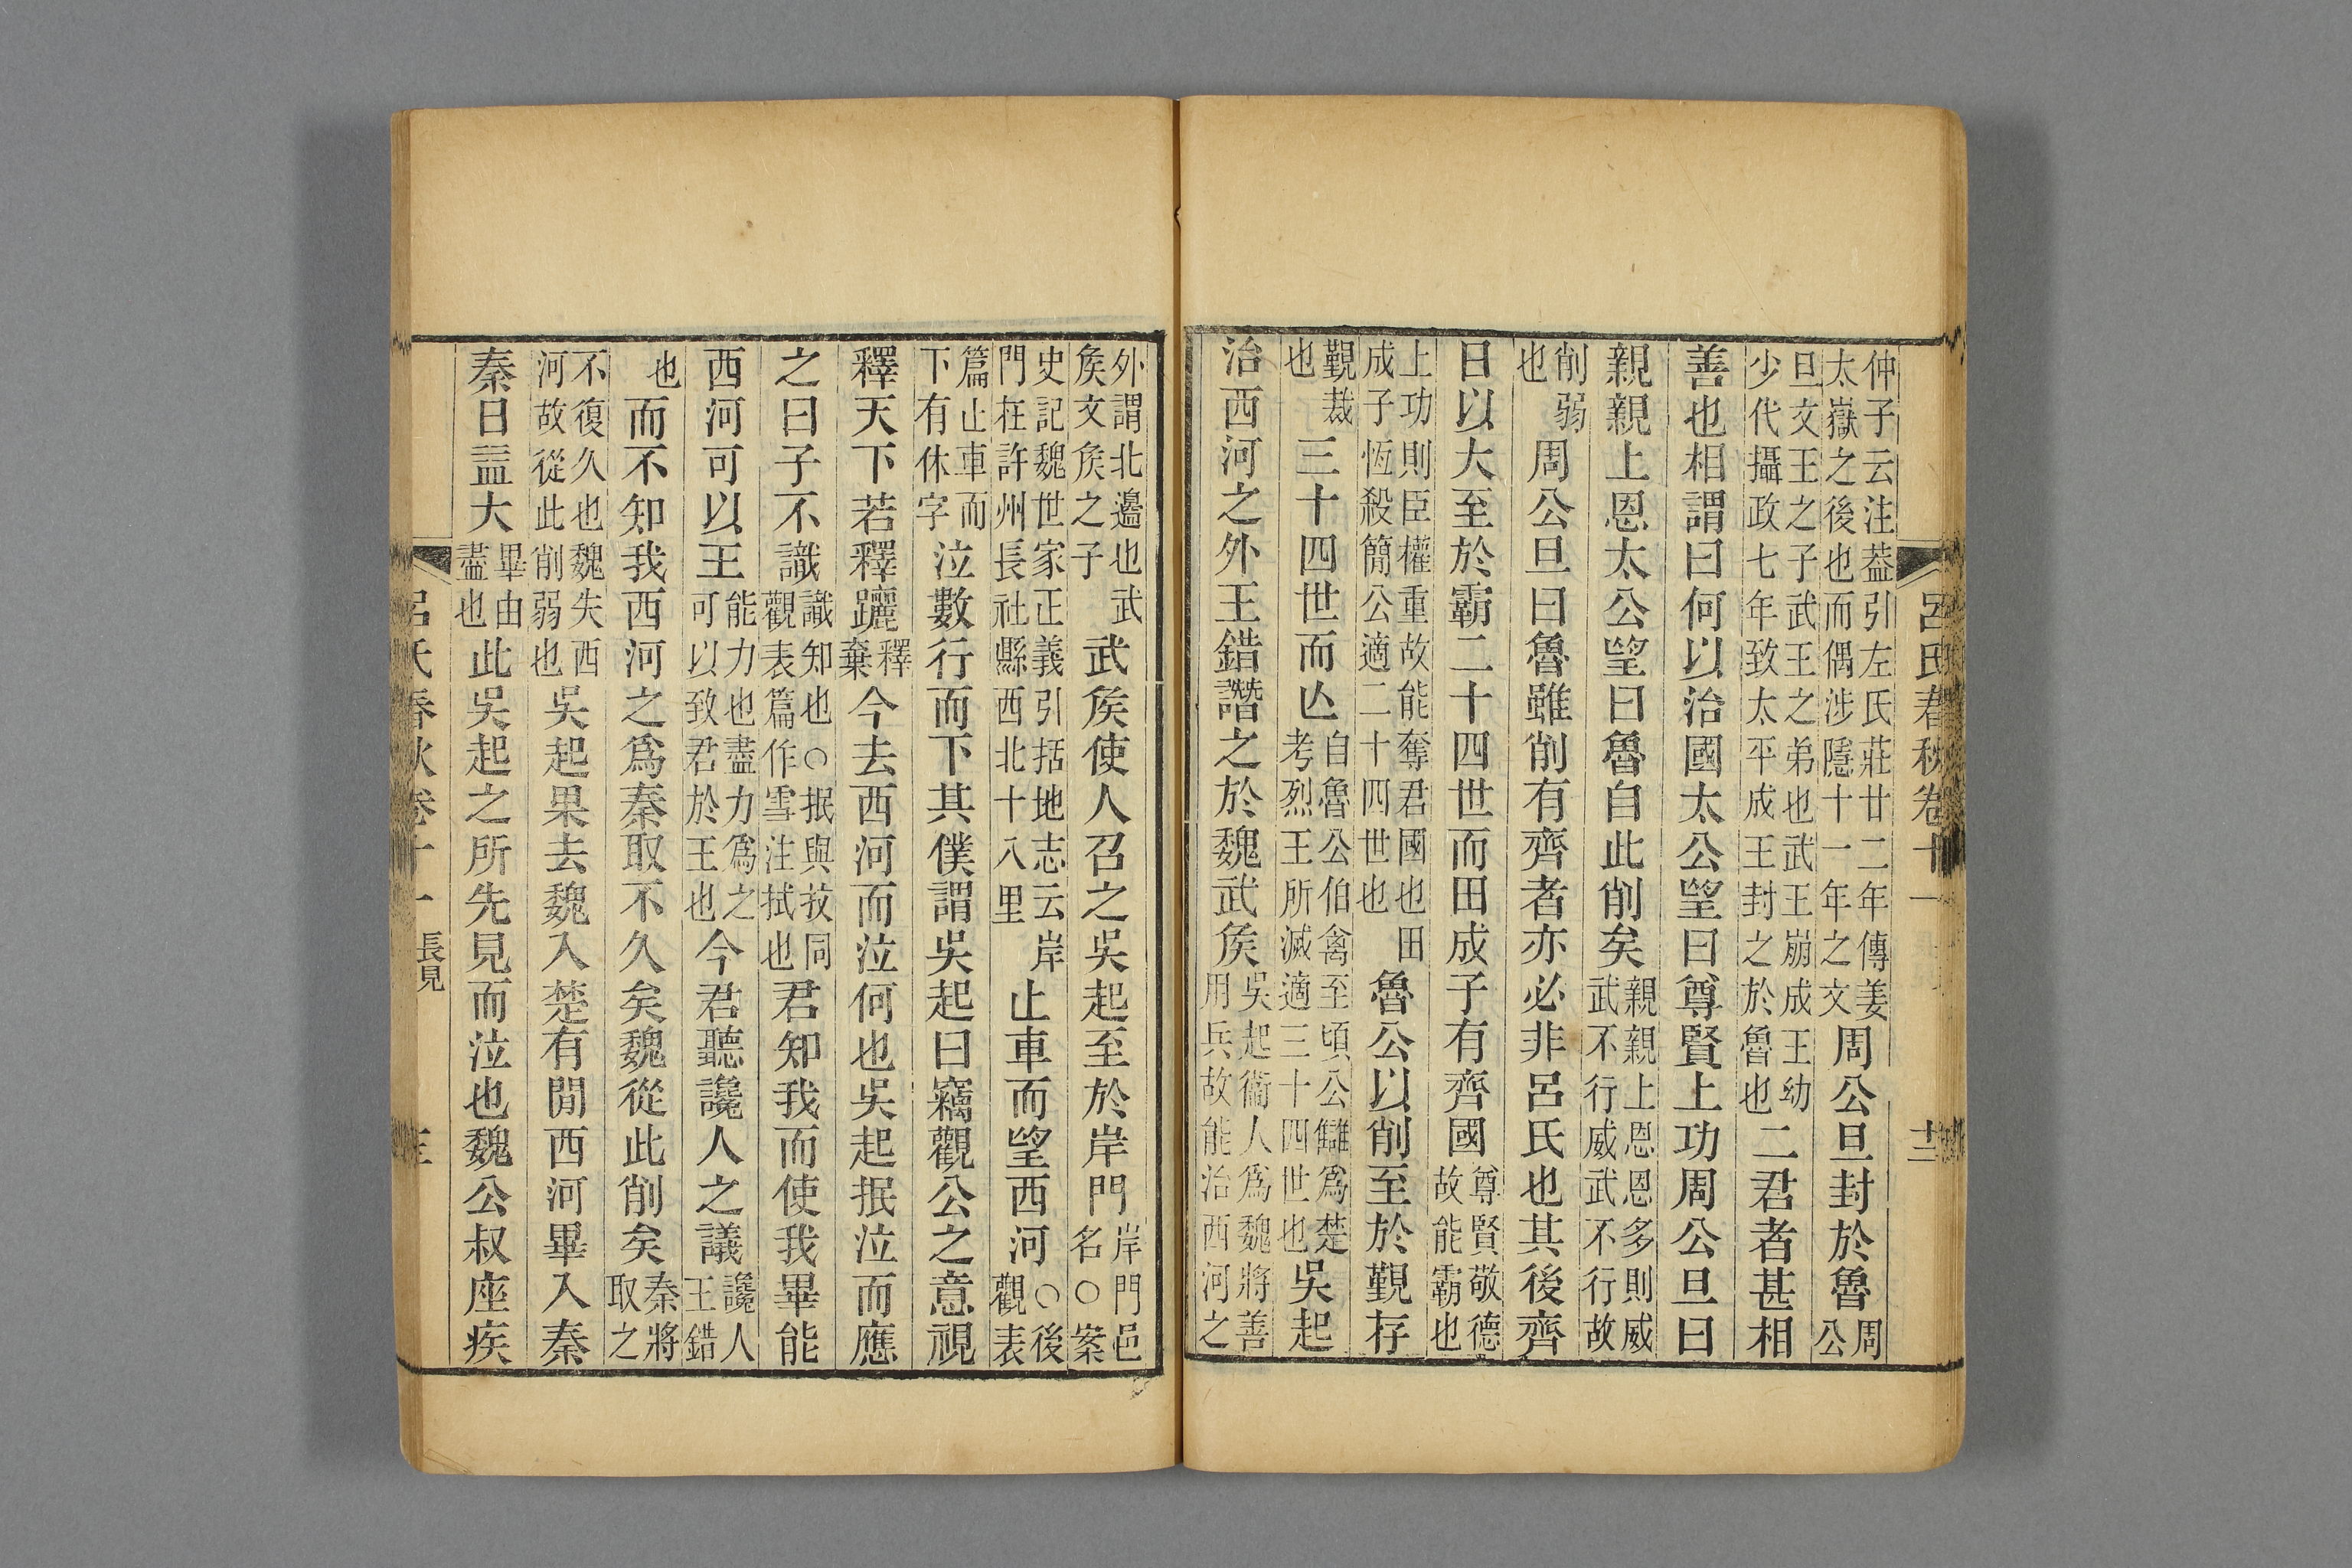 呂氏春秋卷十一
仲子云注蓋引左氏莊廿二年傳姜
太嶽之後也而偶涉隱十一年之文
周公旦封於魯
周
公
旦文王之子武王之弟也武王崩成王幼
少代攝政七年致太平成王封之於魯也
二君者甚相
善也相謂曰何以治國太公望曰尊賢上功周公旦曰
親親上恩太公望曰魯自此削矣
親親上恩恩多則威
武不行威武不行故
削弱
也
周公旦曰魯雖削有齊者亦必非呂氏也其後齊
日以大至於霸二十四世而田成子有齊國
尊賢敬德
故能霸也
上功則臣權重故能奪君國也田
成子恆殺簡公適二十四世也
魯公以削至於覲存
覲裁
也
三十四世而亾
自魯公伯禽至頃公讎爲楚
考烈王所滅適三十四世也
吳起
治西河之外王錯譖之於魏武矦
吳起衞人爲魏將善
用兵故能治西河之
外謂北邊也武
矦文矦之子
武矦使人召之吳起至於岸門
岸門邑
名○案
史記魏世家正義引括地志云岸
門在許州長社縣西北十八里
止車而望西河
○後
觀表
篇止車而
下有休字
泣數行而下其僕謂吳起曰竊觀公之意視
釋天下若釋躧
釋
棄
今去西河而泣何也吳起抿泣而應
之曰子不識
識知也○抿與抆同
觀表篇作雪注拭也
君知我而使我畢能
西河可以王
能力也盡力爲之
可以致君於王也
今君聽讒人之議
讒人
王錯
也
而不知我西河之爲秦取不久矣魏從此削矣
秦將
取之
不復久也魏失西
河故從此削弱也
吳起果去魏入楚有閒西河畢入秦
秦日益大
畢由
盡也
此吳起之所先見而泣也魏公叔座疾
呂氏春秋卷十一
長見